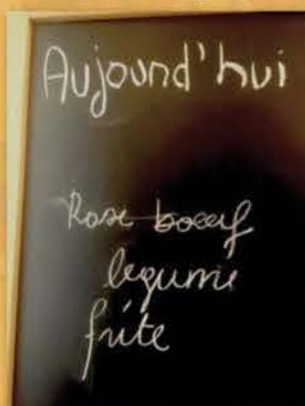 Aujound'hui
Rose boeuf
legume
frite